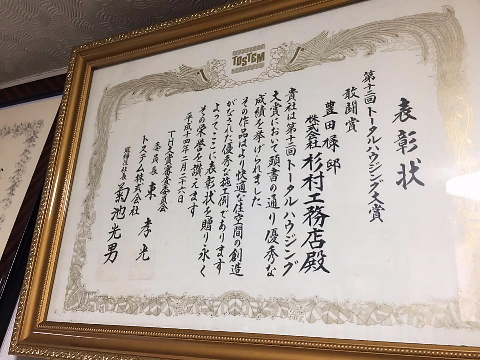 TOSTEM
表彰状
第十二回トータルハウジング大賞
敢闘賞
豊田様邸
株式会社杉村工務店殿
貴社は第十二回トータルハウジング
大賞において頭書の通り優秀な
成績を挙げられました
その作品はより快適な住空間の創造
がなされた優秀な施工例であります
よってここに表彰状を贈り永く
その栄誉を讃えます
平成十四年二月二十六日
THA賞審査委員会
委員長 東孝光
トステム株式会社
取締役社長 菊池光男